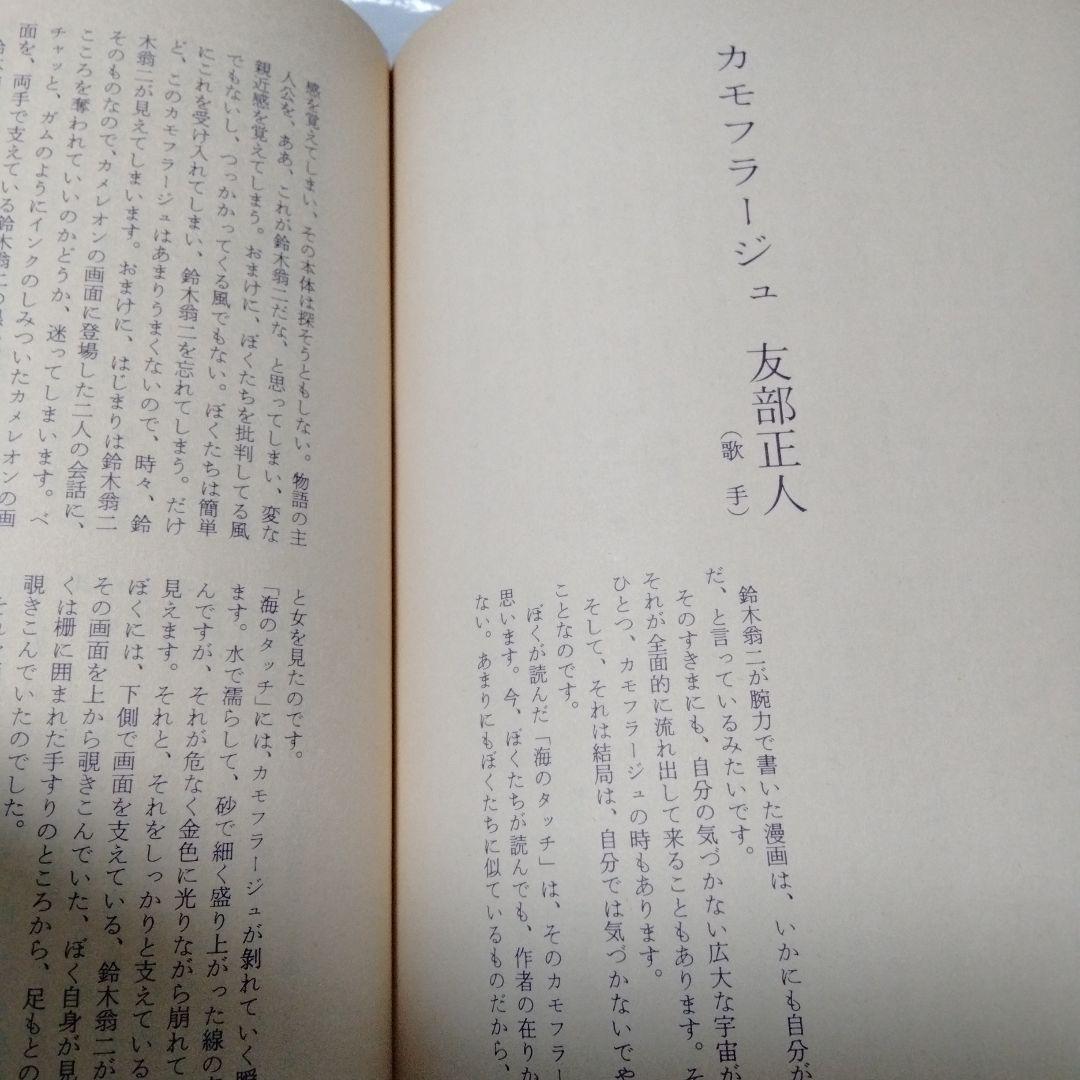 カモフラージュ
友部正人
(歌 手)
鈴木翁二が腕力で書いた漫画は、いかにも自分が
だ、と言っているみたいです。
そのすきまにも、自分の気づかない広大な宇宙が
それが全面的に流れ出して来ることもあります。そ
ひとつ、カモフラージュの時もあります。
そして、それは結局は、自分では気づかないでや
ことなのです。
ぼくが読んだ「海のタッチ」は、そのカモフラー
思います。今、ぼくたちが読んでも、作者の在りか
ない。あまりにもぼくたちに似ているものだから、
感を覚えてしまい、その本体は探そうともしない。物語の主
人公を、ああ、これが鈴木翁二だな、と思ってしまい、変な
親近感を覚えてしまう。おまけに、ぼくたちを批判してる風
でもないし、つっかかってくる風でもない。ぼくたちは簡単
にこれを受け入れてしまい、鈴木翁二を忘れてしまう。だけ
ど、このカモフラージュはあまりうまくないので、時々、鈴
木翁二が見えてしまいます。おまけに、はじまりは鈴木翁二
そのものなので、カメレオンの画面に登場した二人の会話に、
こころを奪われていいのかどうか、迷ってしまいます。ベ
チャッと、ガムのようにインクのしみついたカメレオンの画
面を、両手で支えている鈴木翁二の
と女を見たのです。
「海のタッチ」には、カモフラージュが剥れていく瞬
ます。水で濡らして、砂で細く盛り上がった線の
んですが、それが危なく金色に光りながら崩れて
見えます。それと、それをしっかりと支えている
ぼくには、下側で画面を支えている、鈴木翁二が
その画面を上から覗きこんでいた、ぼく自身が見
くは柵に囲まれた手すりのところから、足もとの
覗きこんでいたのでした。